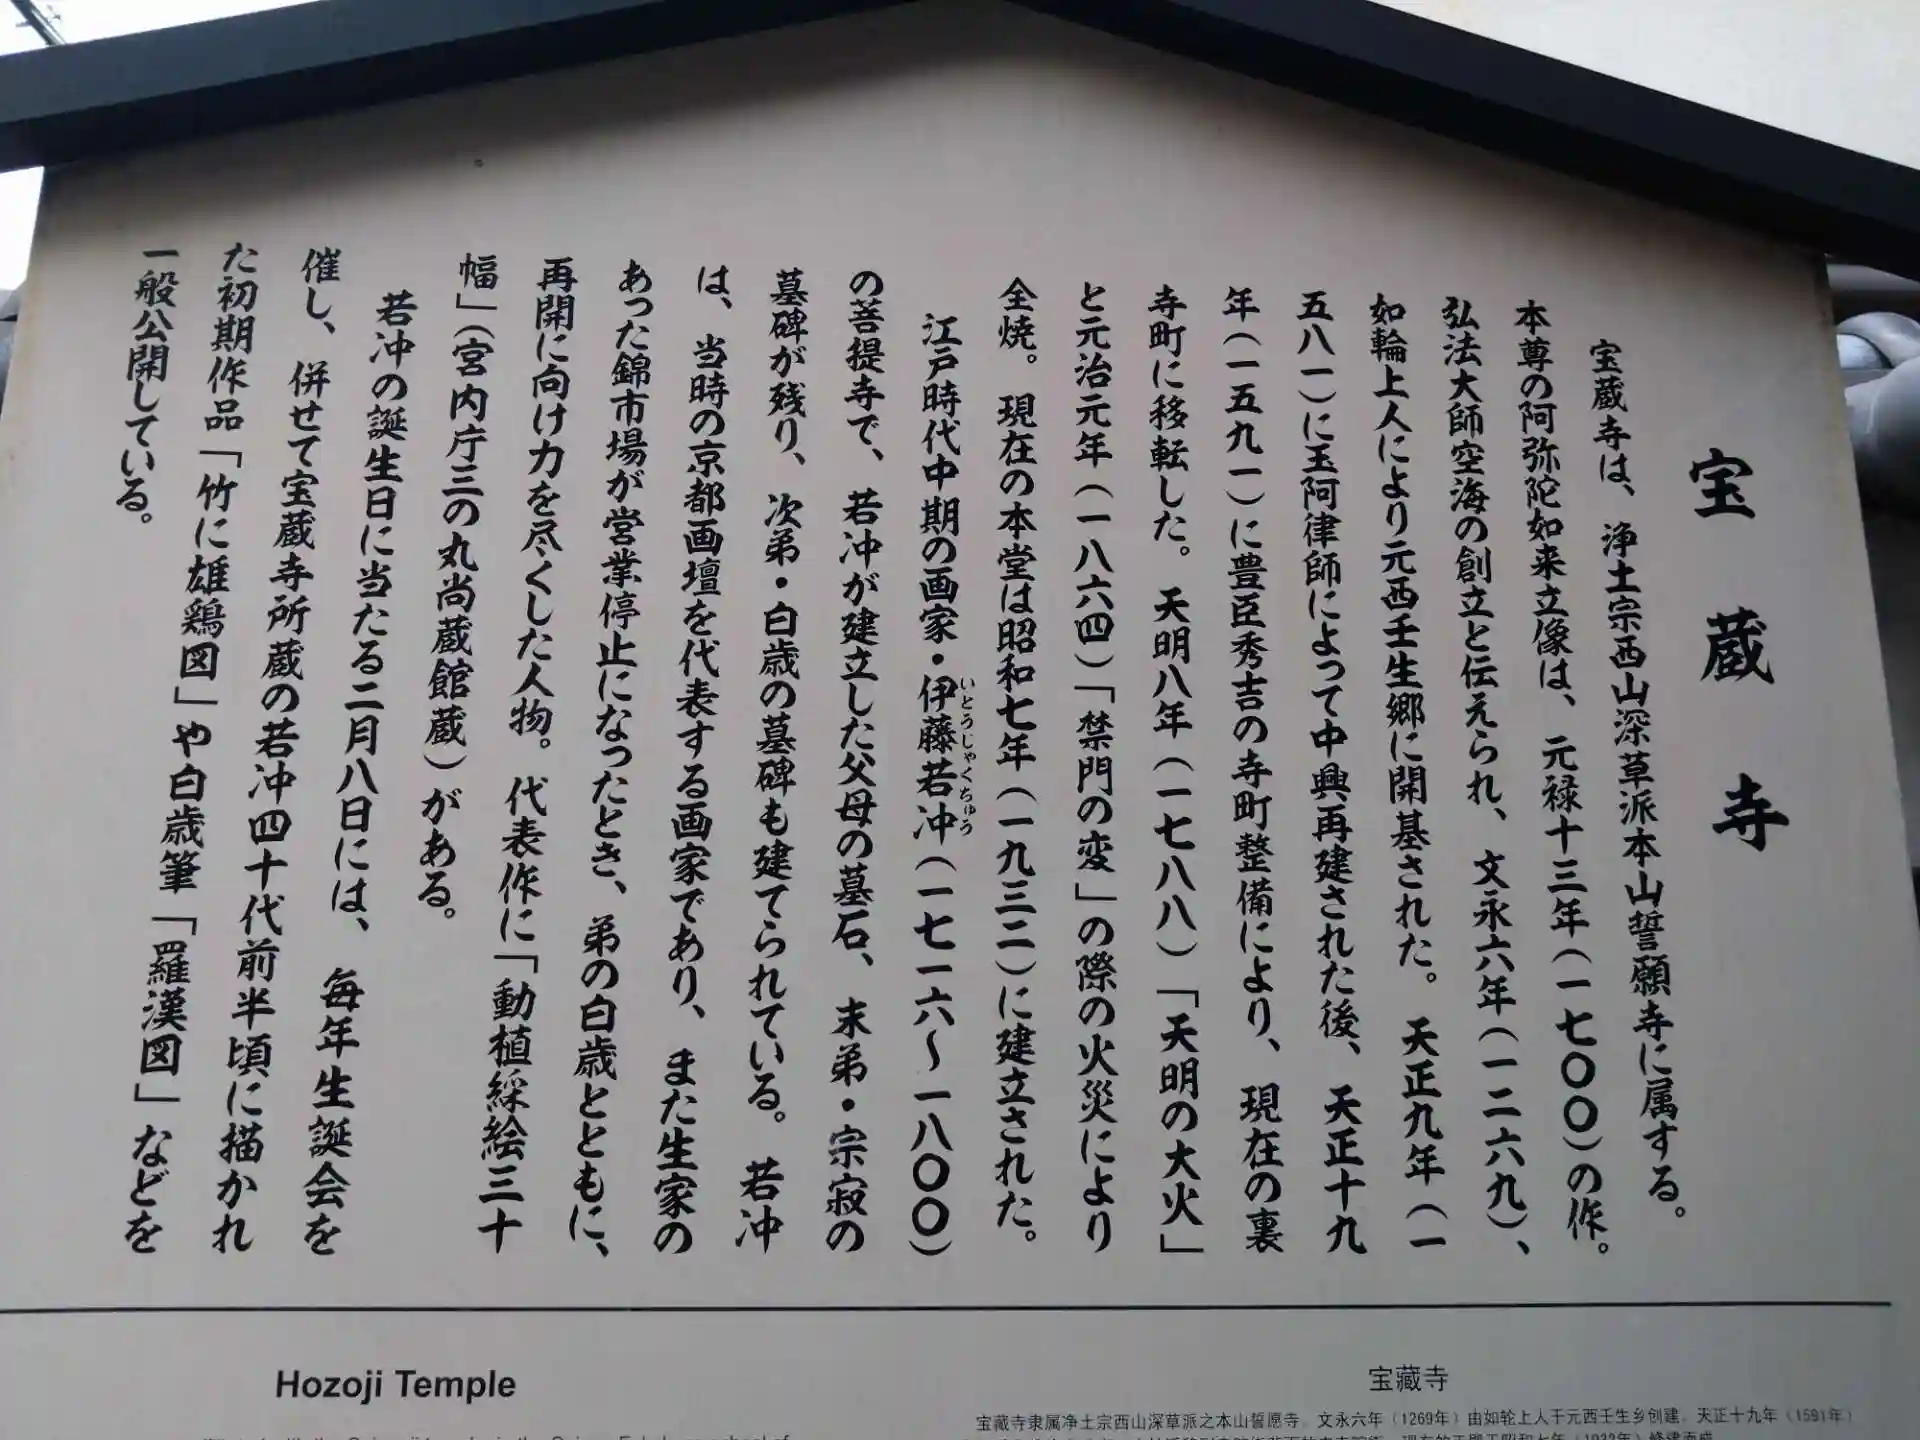 宝蔵寺
宝蔵寺は、浄土宗西山深草派本山誓願寺に属する。
本尊の阿弥陀如来立像は、元禄十三年（一七〇〇）の作。
弘法大師空海の創立と伝えられ、文永六年（一二六九）、
如輪上人により元西壬生郷に開基された。天正九年（一
五八一）に玉阿律師によって中興再建された後、天正十九
年（一五九一）に豊臣秀吉の寺町整備により、現在の裏
寺町に移転した。天明八年（一七八八）「天明の大火」
と元治元年（一八六四）「禁門の変」の際の火災により
全焼。現在の本堂は昭和七年（一九三二）に建立された。
江戸時代中期の画家・伊藤若冲（一七一六〜一八〇〇）
いとうじゃくちゅう
の菩提寺で、若冲が建立した父母の墓石、末弟・宗寂の
墓碑が残り、次弟・白歳の墓碑も建てられている。若冲
は、当時の京都画壇を代表する画家であり、また生家の
あった錦市場が営業停止になったとき、弟の白歳とともに、
再開に向け力を尽くした人物。代表作に「動植綵絵三十
幅」（宮内庁三の丸尚蔵館蔵）がある。
若冲の誕生日に当たる二月八日には、毎年生誕会を
催し、併せて宝蔵寺所蔵の若冲四十代前半頃に描かれ
た初期作品「竹に雄鶏図」や白歳筆「羅漢図」などを
一般公開している。
Hozoji Temple
宝藏寺
宝藏寺隶属净土宗西山深草派之本山誓愿寺。文永六年（1269年）由如轮上人于元西壬生乡创建。天正十九年（1591年）